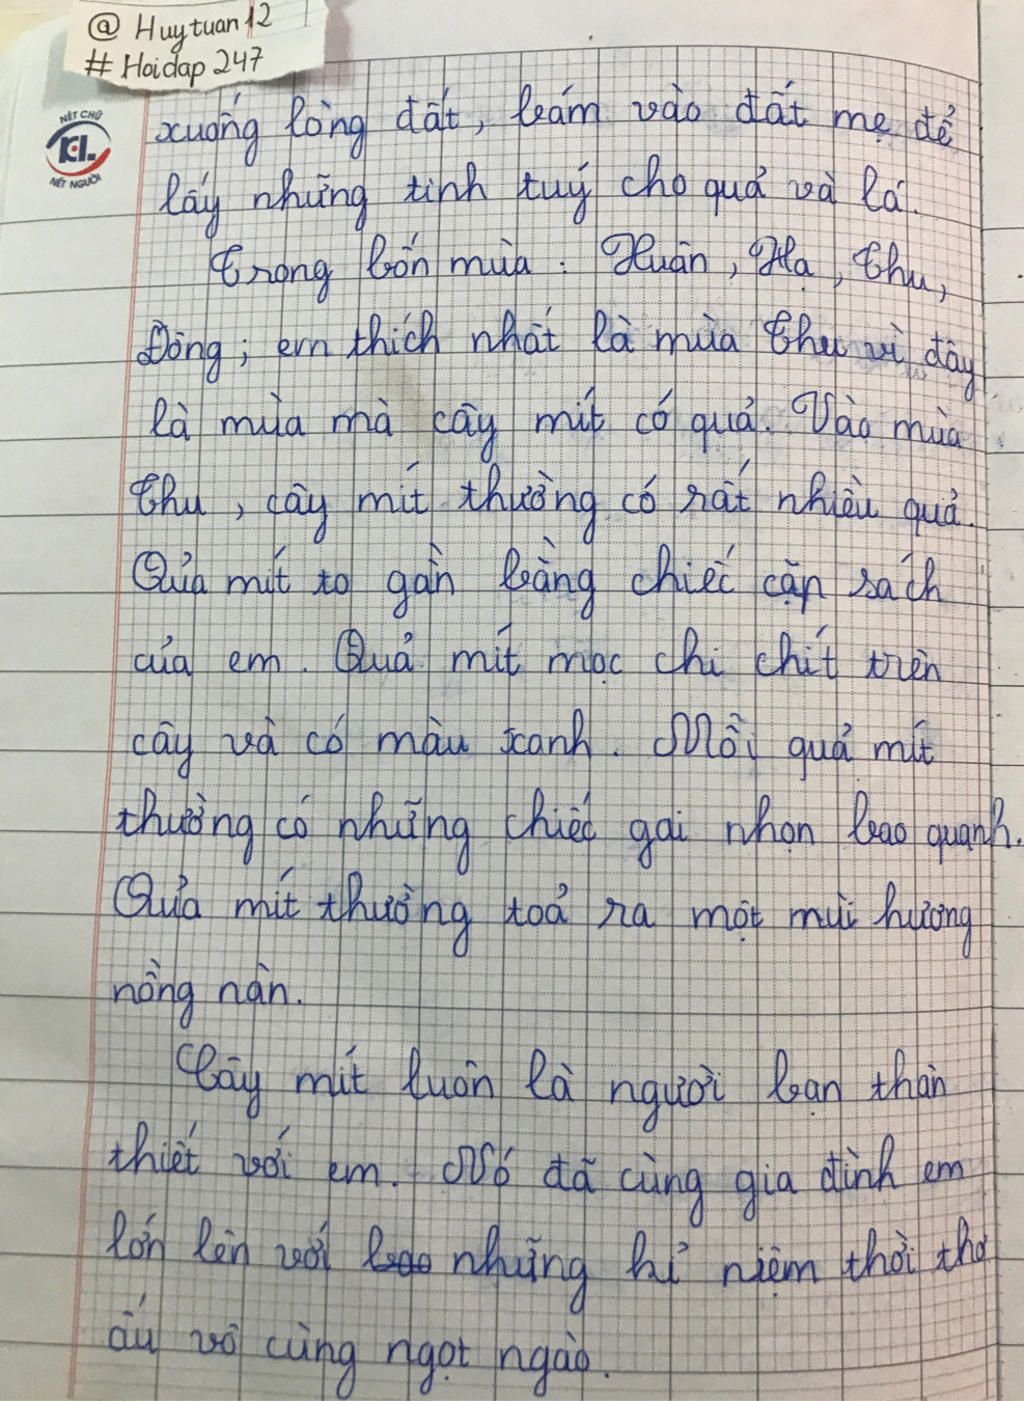 @ Huytuan12
# Hoidap 247
NÉT CHỮ
KL.
NẾT NGƯỜI
xuống lòng đất, bám vào đất mẹ để
lấy những tinh tuý cho quả và lá.
Trong bốn mùa: Xuân, Hạ, Thu,
Đông; em thích nhất là mùa Thu vì đây
là mùa mà cây mít có quả. Vào mùa
Thu, cây mít thường có rất nhiều quả.
Qủa mít to gần bằng chiếc cặp sách
của em. Quả mít mọc chi chít trên
cây và có màu xanh. Mỗi quả mít
thường có những chiếc gai nhọn bao quanh.
Qủa mít thường toả ra một mùi hương
nồng nàn.
Cây mít luôn là người bạn thân
thiết với em. Nó đã cùng gia đình em
lớn lên với bao những kỉ niệm thời thơ
ấu vô cùng ngọt ngào.